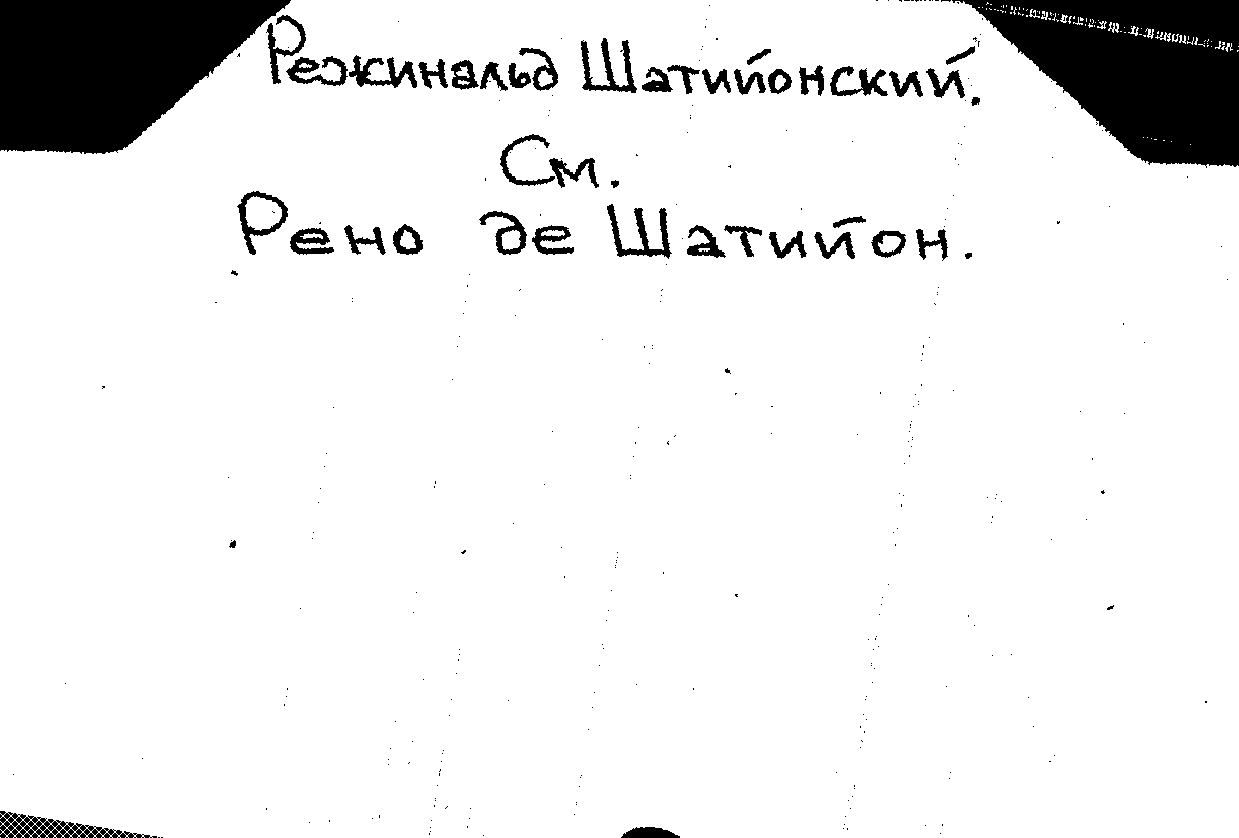 Режинальд Шатийонский.
См.
Рено де Шатийон.